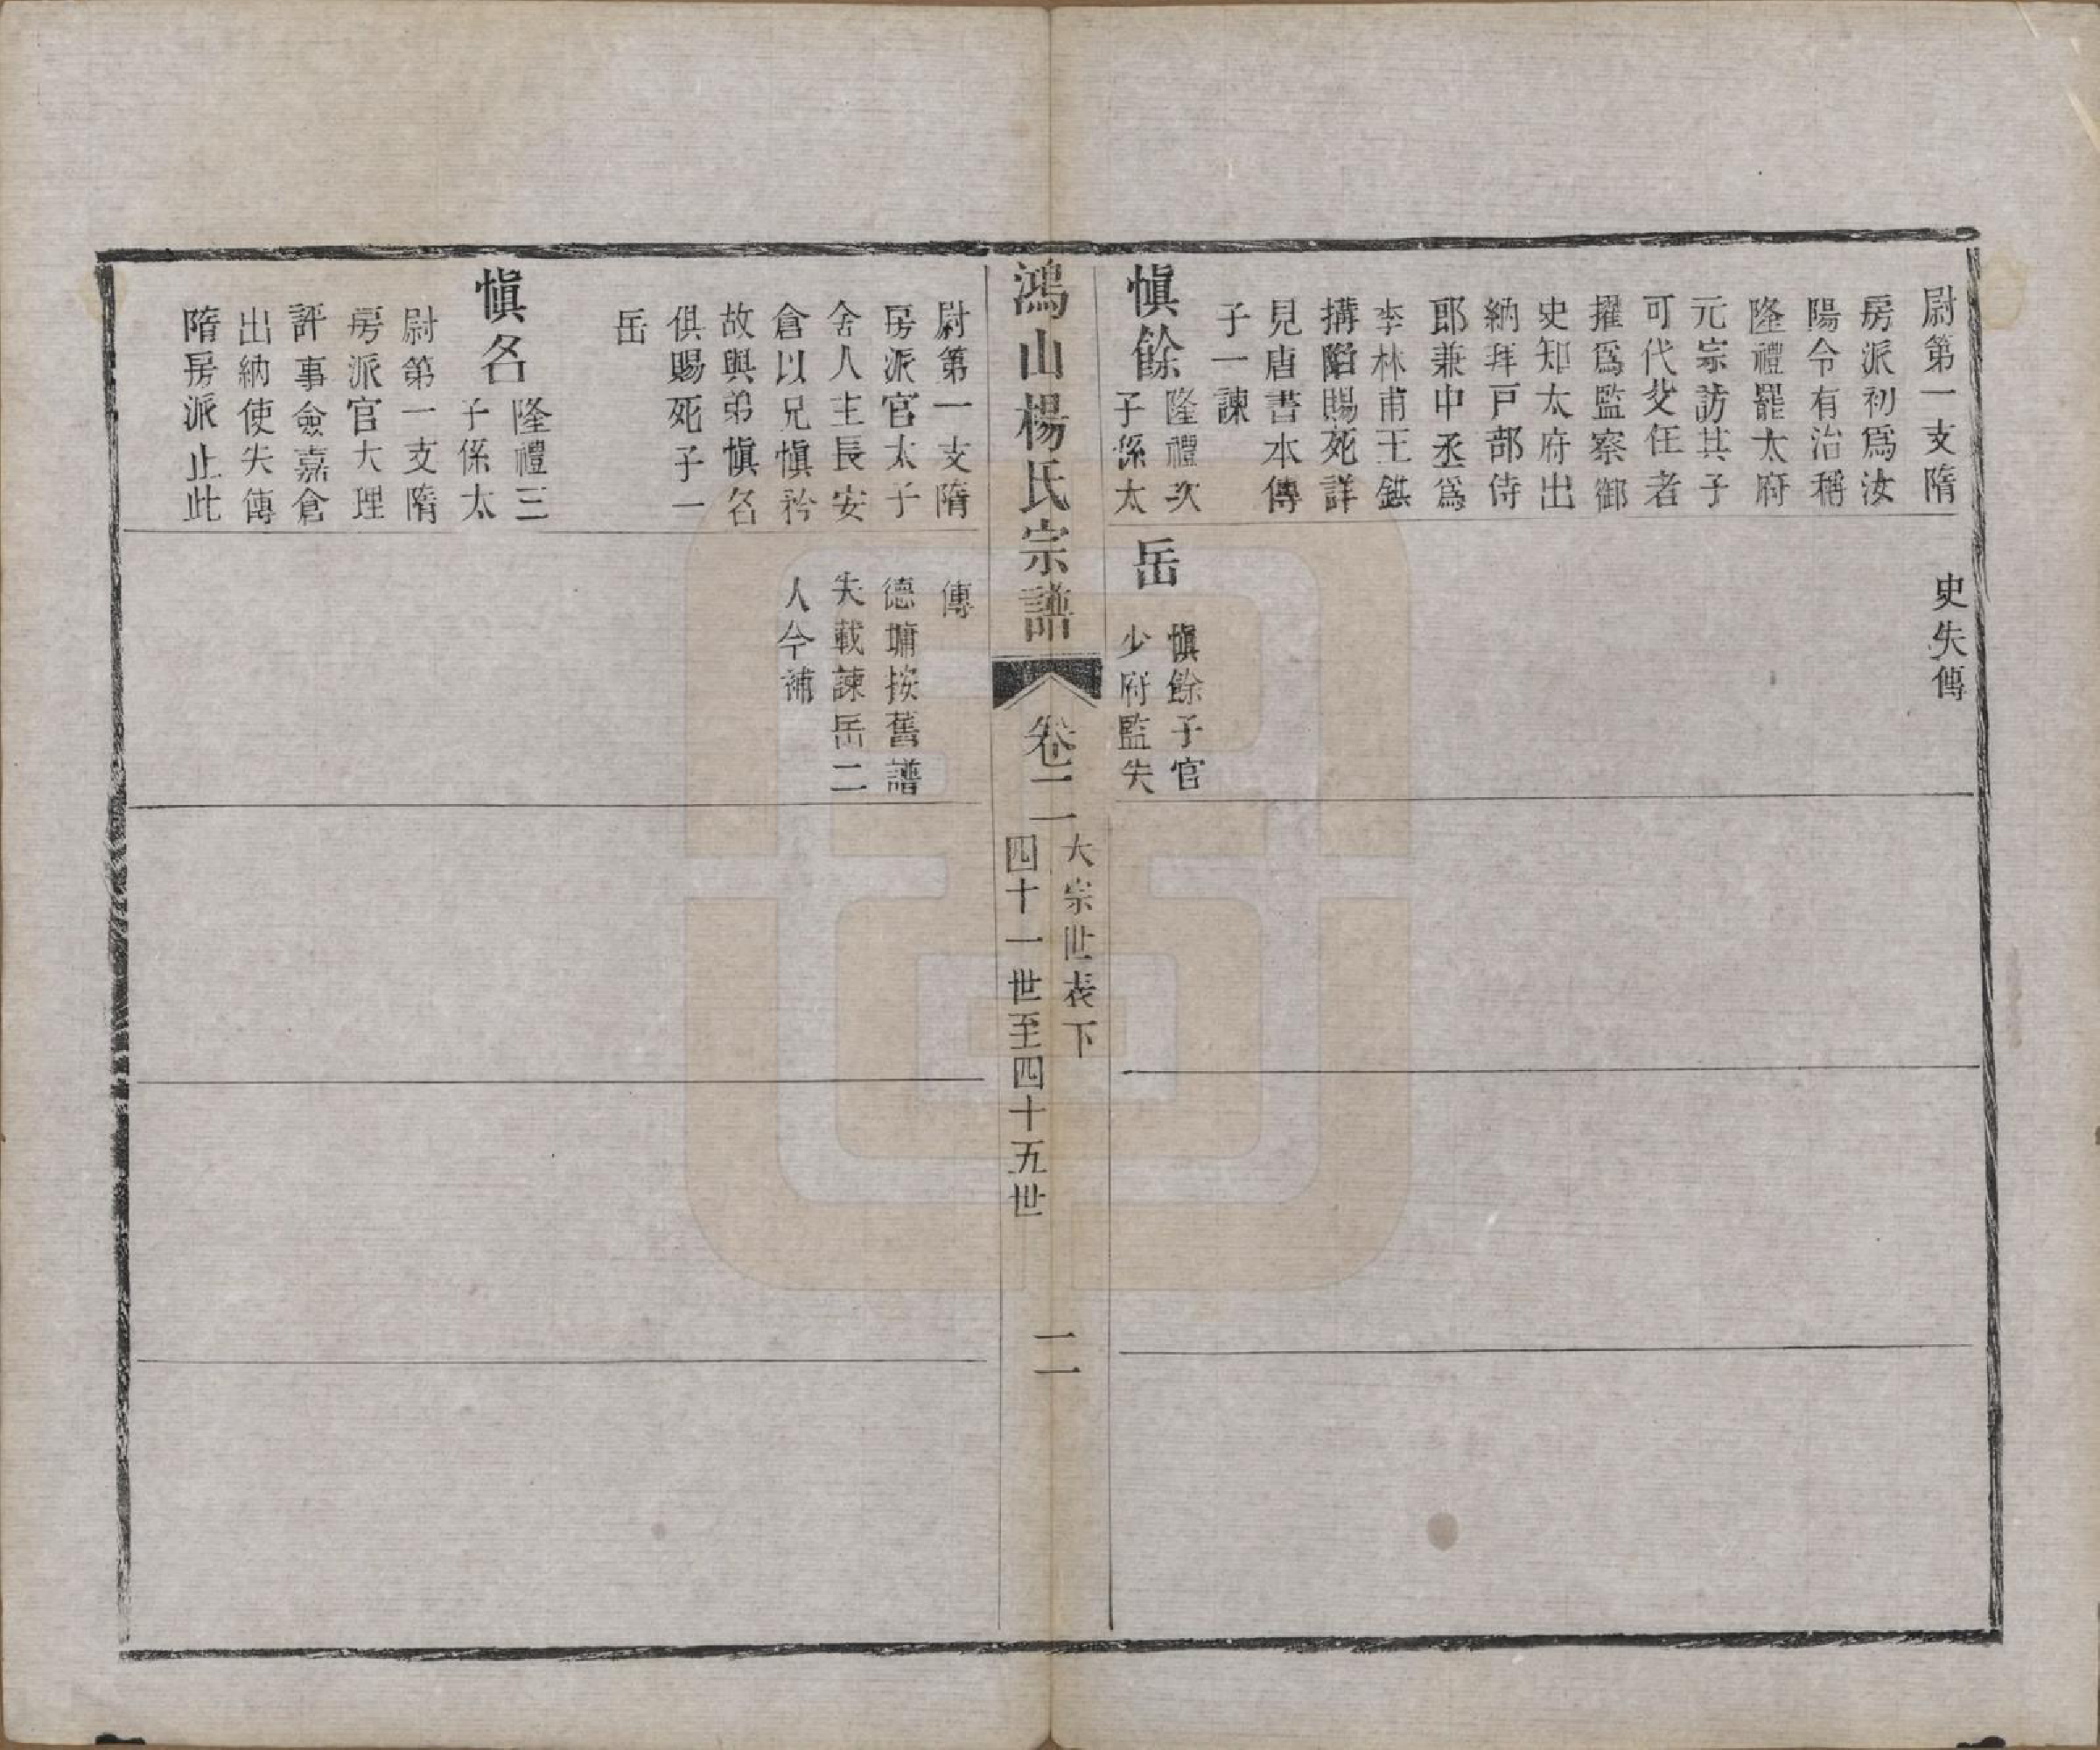 尉第一支隋
房派初爲汝
陽令有治稱
隆禮罷太府
元宗訪其子
可代父任者
擢爲監察御
史知太府出
納拜戸部侍
郎兼中丞爲
李林甫王鉷
搆陷賜死詳
見唐書本傳
子一諫
史失傳
愼餘
隆禮次
子係太
岳
愼餘子官
少府監失
鴻山楊氏宗譜
卷二
大宗世表下
四十一世至四十五世
二
尉第一支隋
房派官太子
舍人主長安
倉以兄愼矜
故與弟愼名
俱賜死子一
岳
傳
德墉按舊譜
失載諫岳二
人今補
愼名
隆禮三
子係太
尉第一支隋
房派官大理
評事僉嘉倉
出納使失傳
隋房派止此